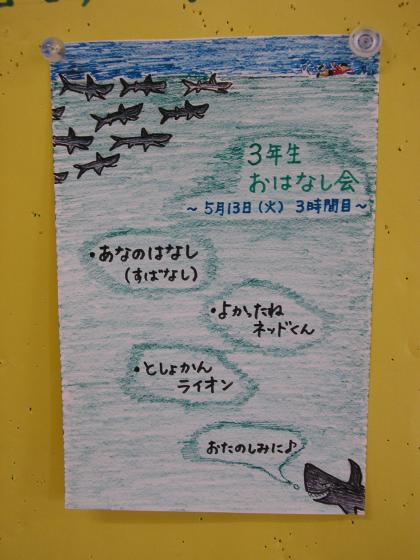 3年生
おはなし会
～5月13日(火) 3時間目～
・あなのはなし
(すばなし)
・よかったね
ネッドくん
・としょかん
ライオン
おたのしみに♪